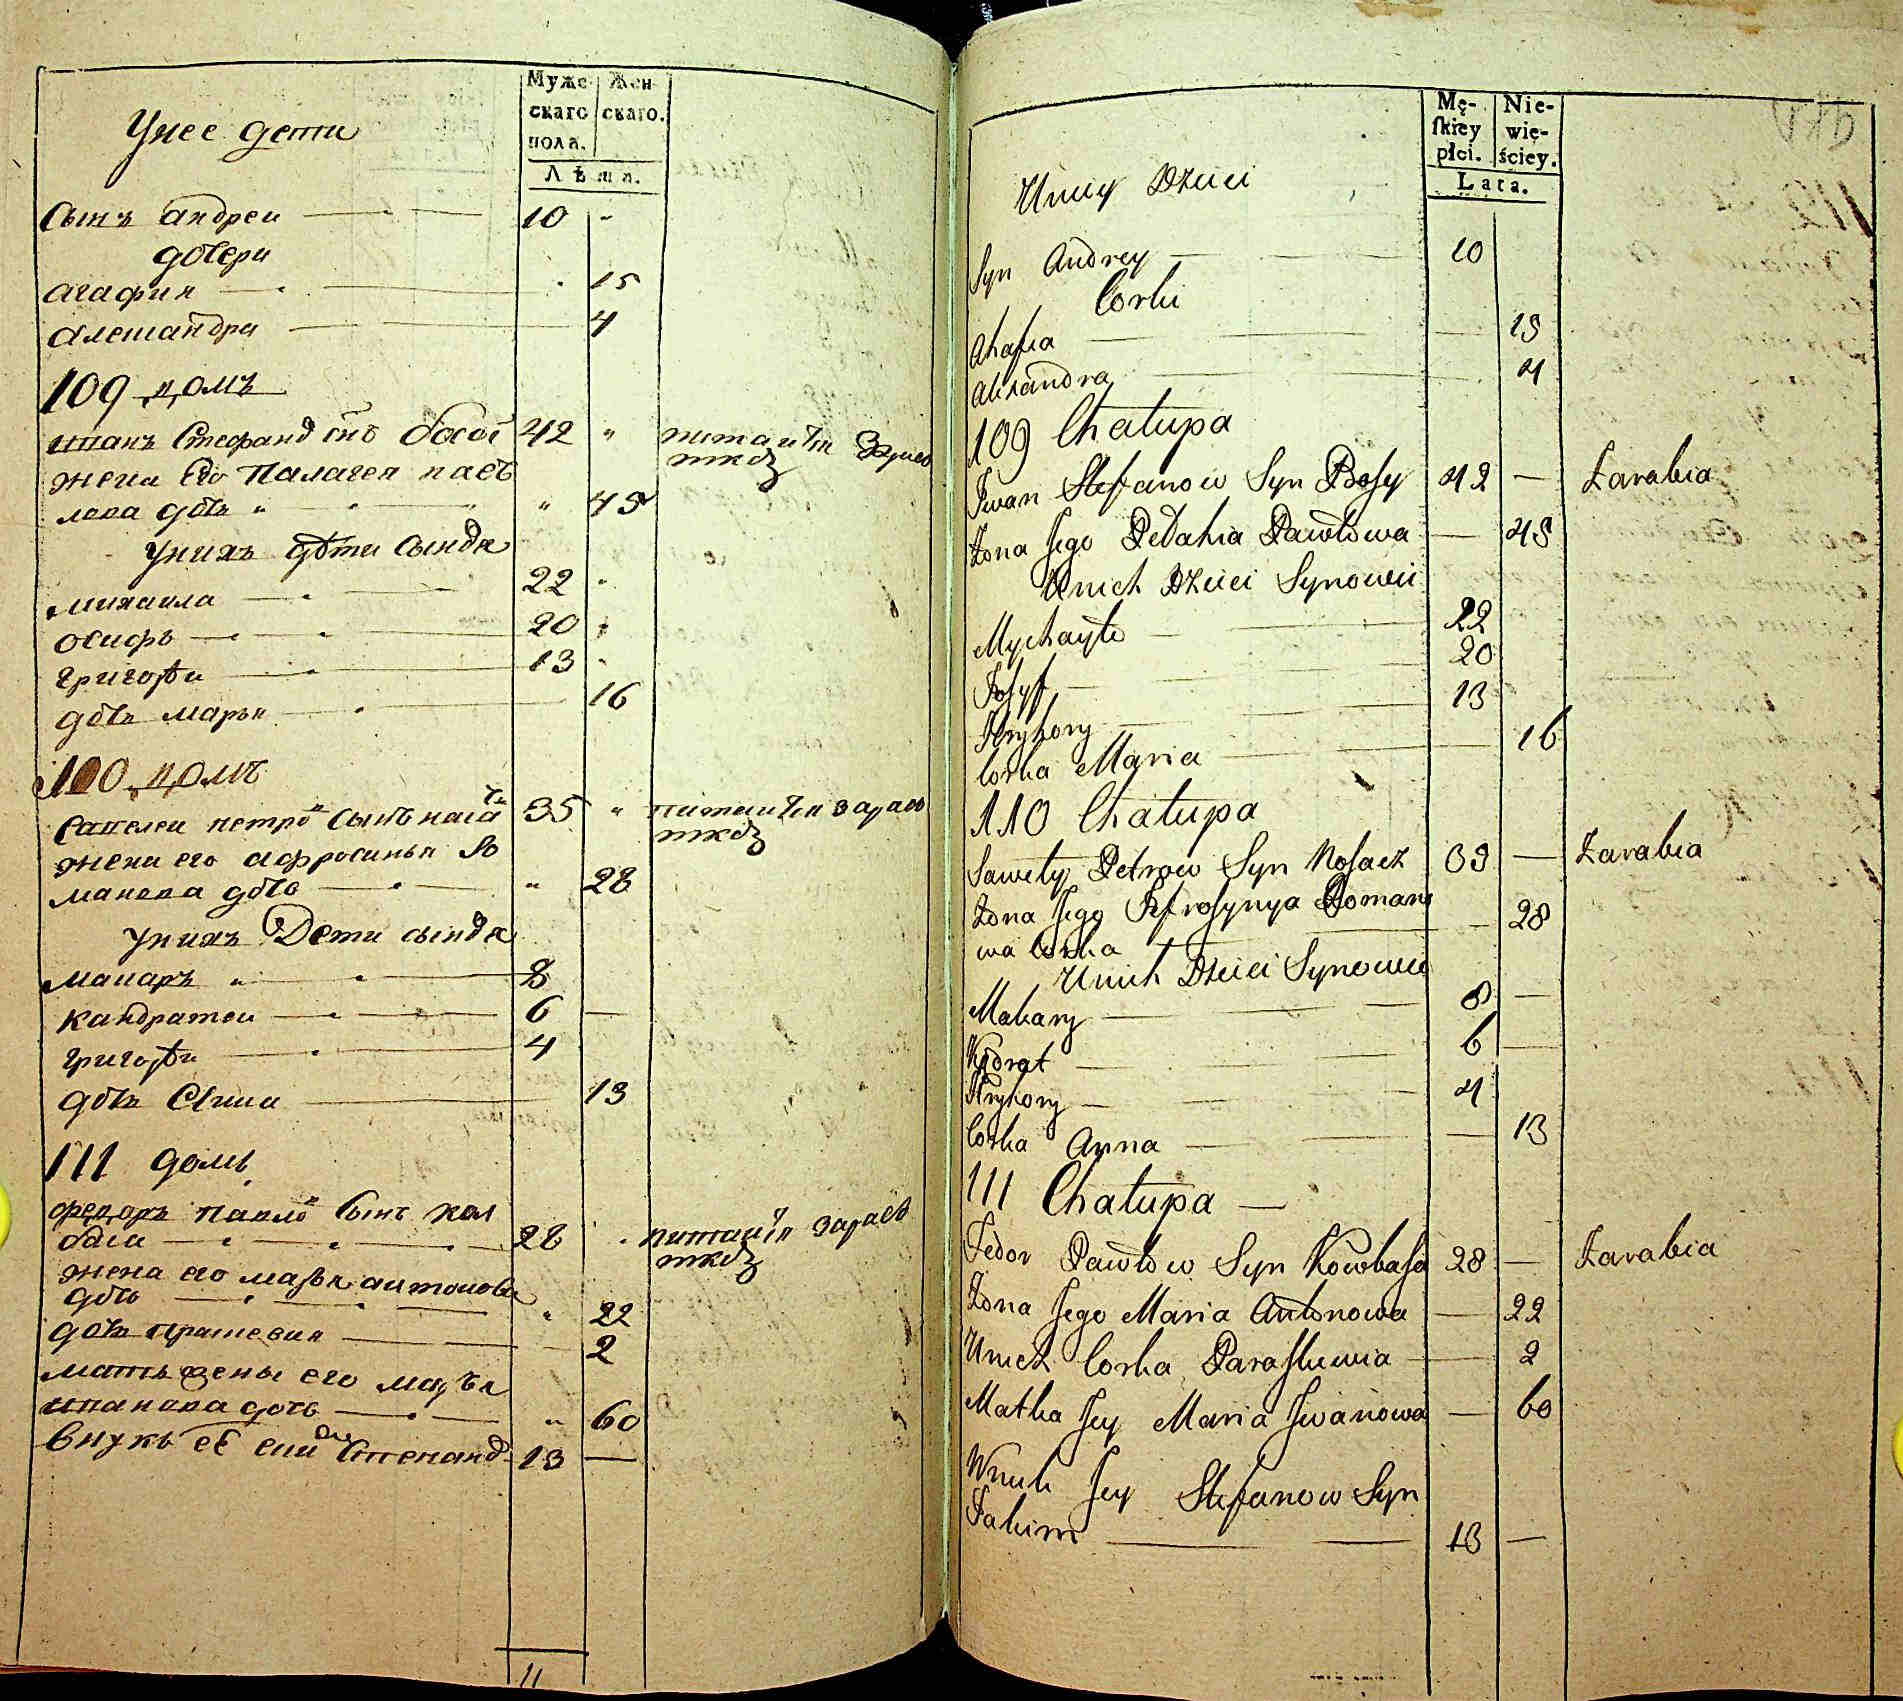 Муже-
скаго
пола.
Жен-
скаго.
Лѣта.
Унее дети
Сынъ андреи 10
дочери
агафия 15
алешандра 4
109 домъ
ипанъ Стефанд снъ босоі 42 питаитъ
жена его палагея павъ
лова дочь 45
Унихъ дѣти Сынов
михаила 22
осифъ 20
григорѣи 13
дочъ маръя 16
110 домъ
Савелеи петро сынъ носа 35 питаитъ зарабо
ткоз
жена его афросинья Ро
манова дочь 28
Унихъ Дети сынов
макаръ 8
кандратеи 6
григорѣи 4
дочъ Анна 13
111 домъ
федоръ павло Сынъ кол
баса 28 питаитъ зарабо
ткоз
жена его маръя антонова
дочь 22
дочъ прашевия 2
мать жены его маръя
ипанова дочь 60
внукъ её Степанд 13
11
Mę-
skiey
płci.
Nie-
wie-
ściey.
Lata.
Uniey Dzieci
Syn Andrey 10
Corki
Ahafia 15
Alexandra 4
109 Chałupa
Jwan Stefanow Syn Bosy 42 — Zarabia
Zona Jego Pelahia Pawłowa — 45
Unich Dzieci Synowie
Mychayło 22
Josyf 20
Hryhory 13
Corka Maria 16
110 Chałupa
Sawely Petrow Syn Nosacz 35 — Zarabia
Zona Jego Efrosynya Roman
wa Corka 28
Unich Dzieci Synowie
Makary 8 —
Kodrat 6 —
Hryhory 4
Corka Anna 13
111 Chałupa —
Fedor Pawłow Syn Kowbasa 28 — Zarabia
Zona Jego Maria Antonowa — 22
Unich Corka Paraskiewia 2
Matka Jey Maria Jwanowa — 60
Wnuk Jey Stefanow Syn
Jakim 13 —